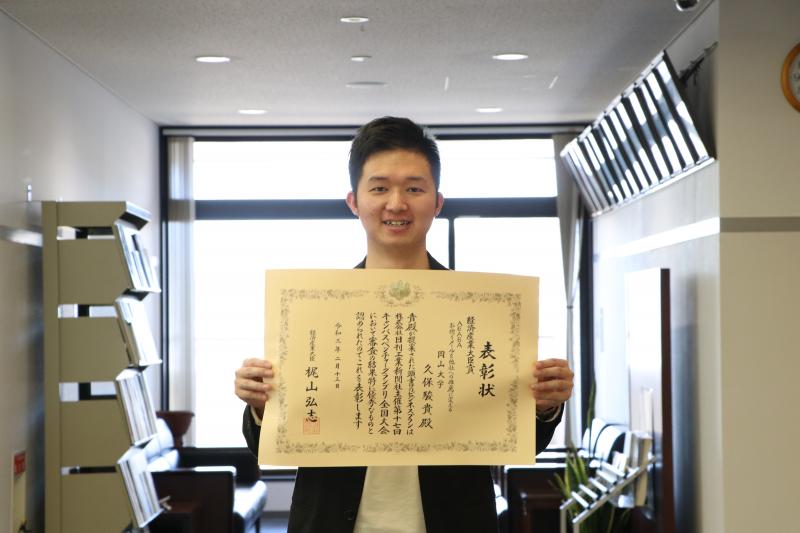 表彰状
経済産業大臣賞
ABABA
お祈りメールを他社への推薦に変える
岡山大学
久保駿貴殿
貴殿が提案された頭書のビジネスプランは
株式会社日刊工業新聞社主催第十七回
キャンパスベンチャーグランプリ全国大会
において審査の結果特に優秀なものと
認められたのでこれを表彰します
令和三年二月十三日
経済産業大臣
梶山弘志